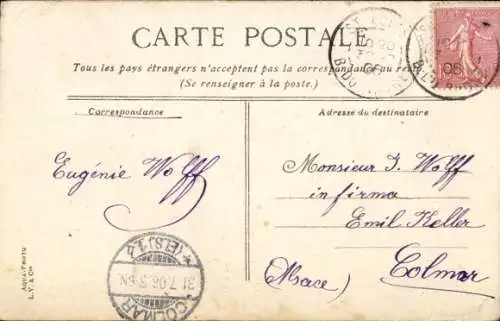 CARTE POSTALE
Tous les pays étrangers n'acceptent pas la correspondance au
(Se renseigner à la poste.)
Correspondance
Adresse du destinataire
Eugénie Wolff
Monsieur J. Wolff
in firma
Emil Keller
Colmar
(Alsace)
Aqua-Photo
L. V. & Cie
06
COLMAR
(ELS)
31.7.06.5-6N